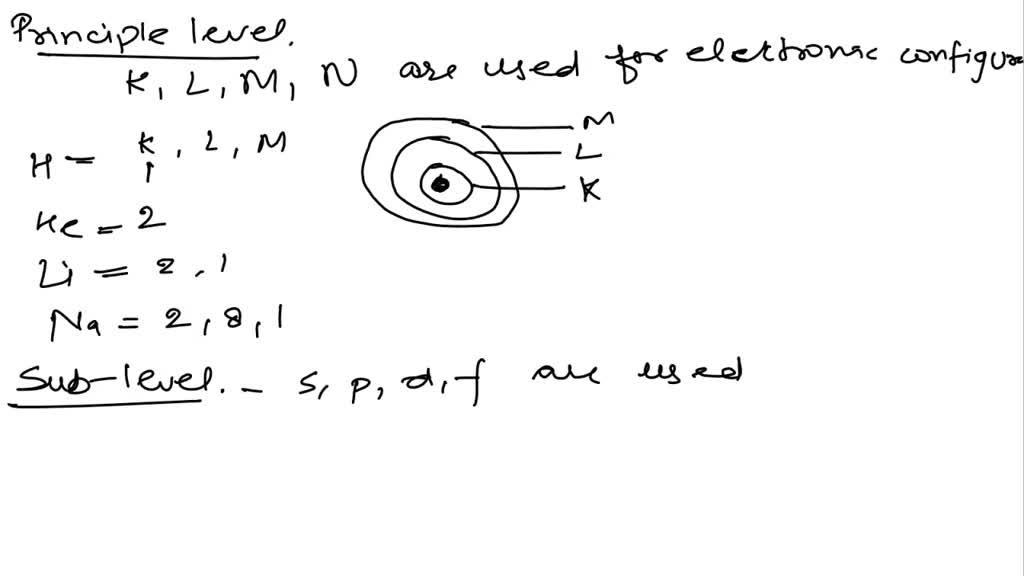 Principle level.
K, L, M, N are used for electronic configura
H = K, L, M
1
M
L
K
He = 2
Li = 2, 1
Na = 2, 8, 1
Sub-level. - s, p, d, f are used